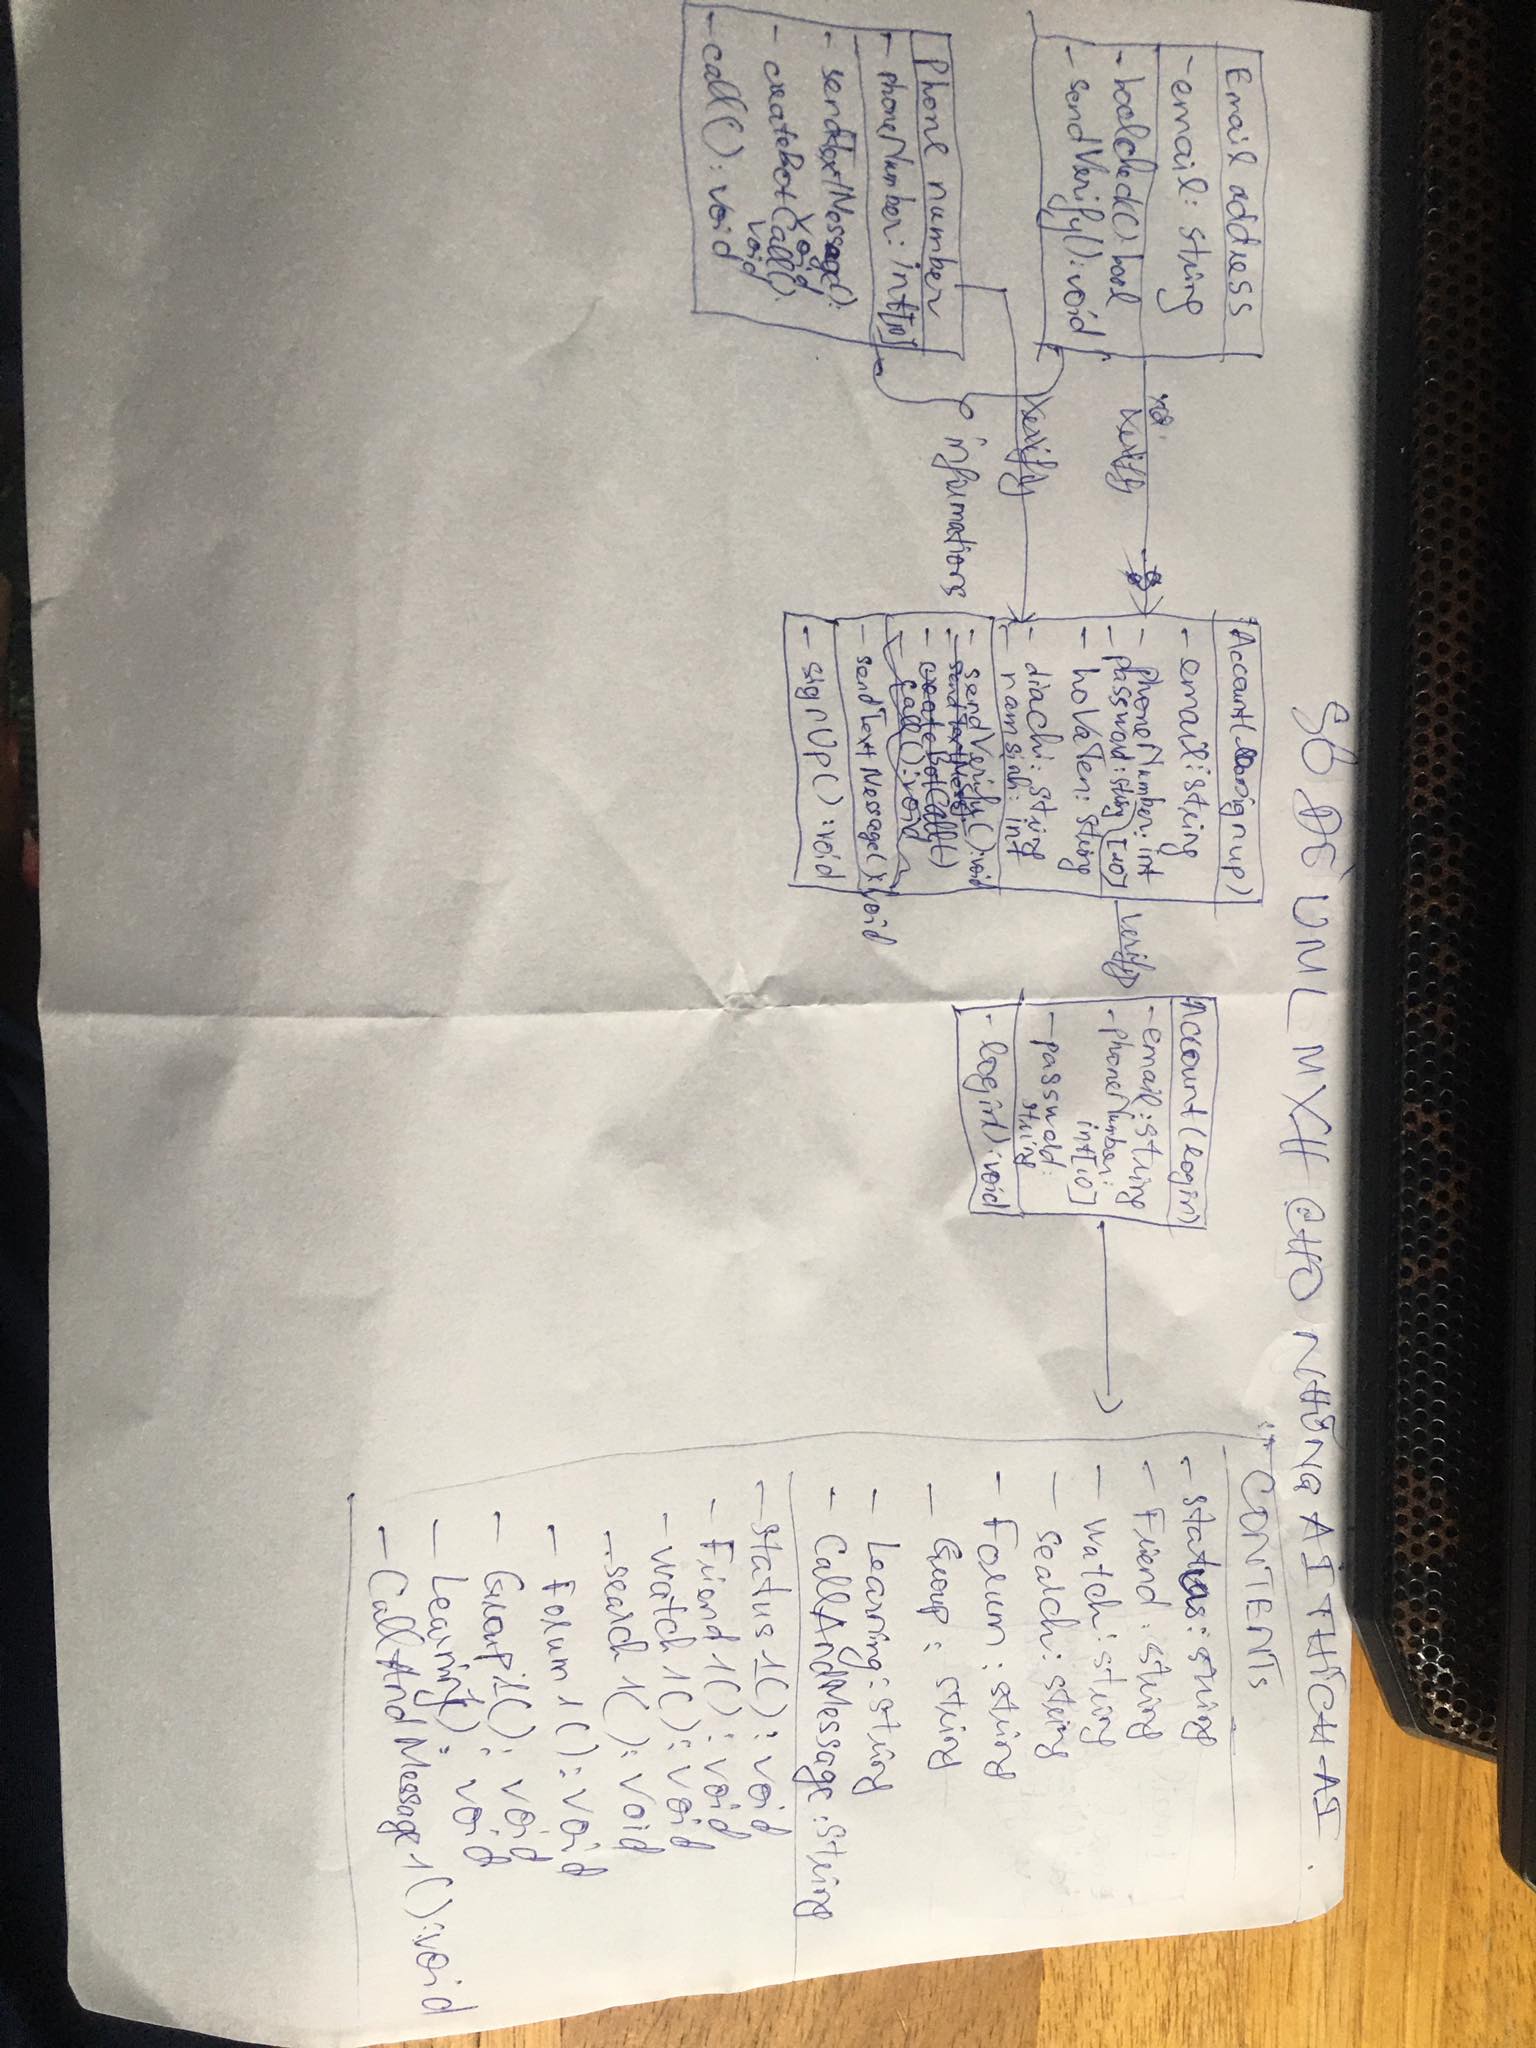 SƠ ĐỒ UML MXH CHO NHỮNG AI THÍCH AI.
Email address
- email: string
- boolcheck(): bool
- sendVerify(): void
verify
verify
informations
Phone number
- phoneNumber: int[10]
- sendTextMessage():
void
- createBotCall():
void
- call(): void
Account(signup)
- email: string
- phoneNumber: int
[10]
- password: string
- hoVaTen: string
- diachi: string
- namsinh: int
- sendVerify(): void
- sendTextMess
- createBotCall()
- call(): void
- sendTextMessage(): void
- signUp(): void
verify
Account(login)
- email: string
- phoneNumber:
int[10]
- password:
string
- login(): void
CONTENTs
- status: string
- Friend: string
- watch: string
- search: string
- Forum: string
- Group: string
- Learning: string
- CallAndMessage: string
- status1(): void
- Friend1(): void
- watch1(): void
- search1(): void
- Forum1(): void
- Group1(): void
- (): void
- CallAndMessage1(): void